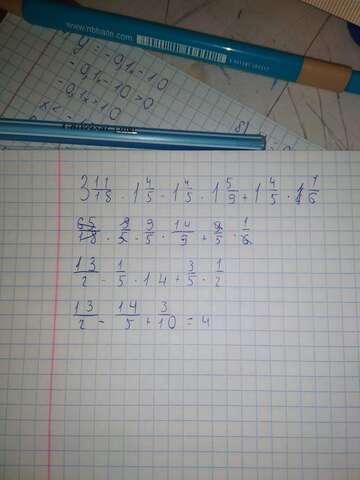 www.nbhaile.com
y = -0,1x - 10
-0,1x - 10 > 0
-0,1x > 10
8)
3 11/18 · 1 4/5 - 1 4/5 · 1 5/9 + 1 4/5 · 1/6
65/18 · 9/5 - 9/5 · 14/9 + 9/5 · 1/6
13/2 - 1/5 · 14 + 3/5 · 1/2
13/2 - 14/5 + 3/10 = 4